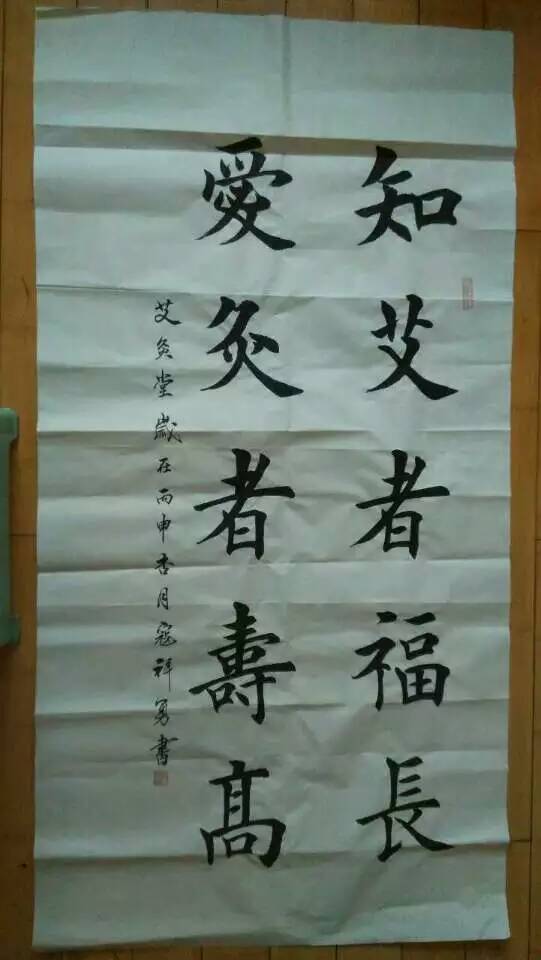 知艾者福長
愛灸者壽髙
艾灸堂歲在丙申杏月寇祥勇書